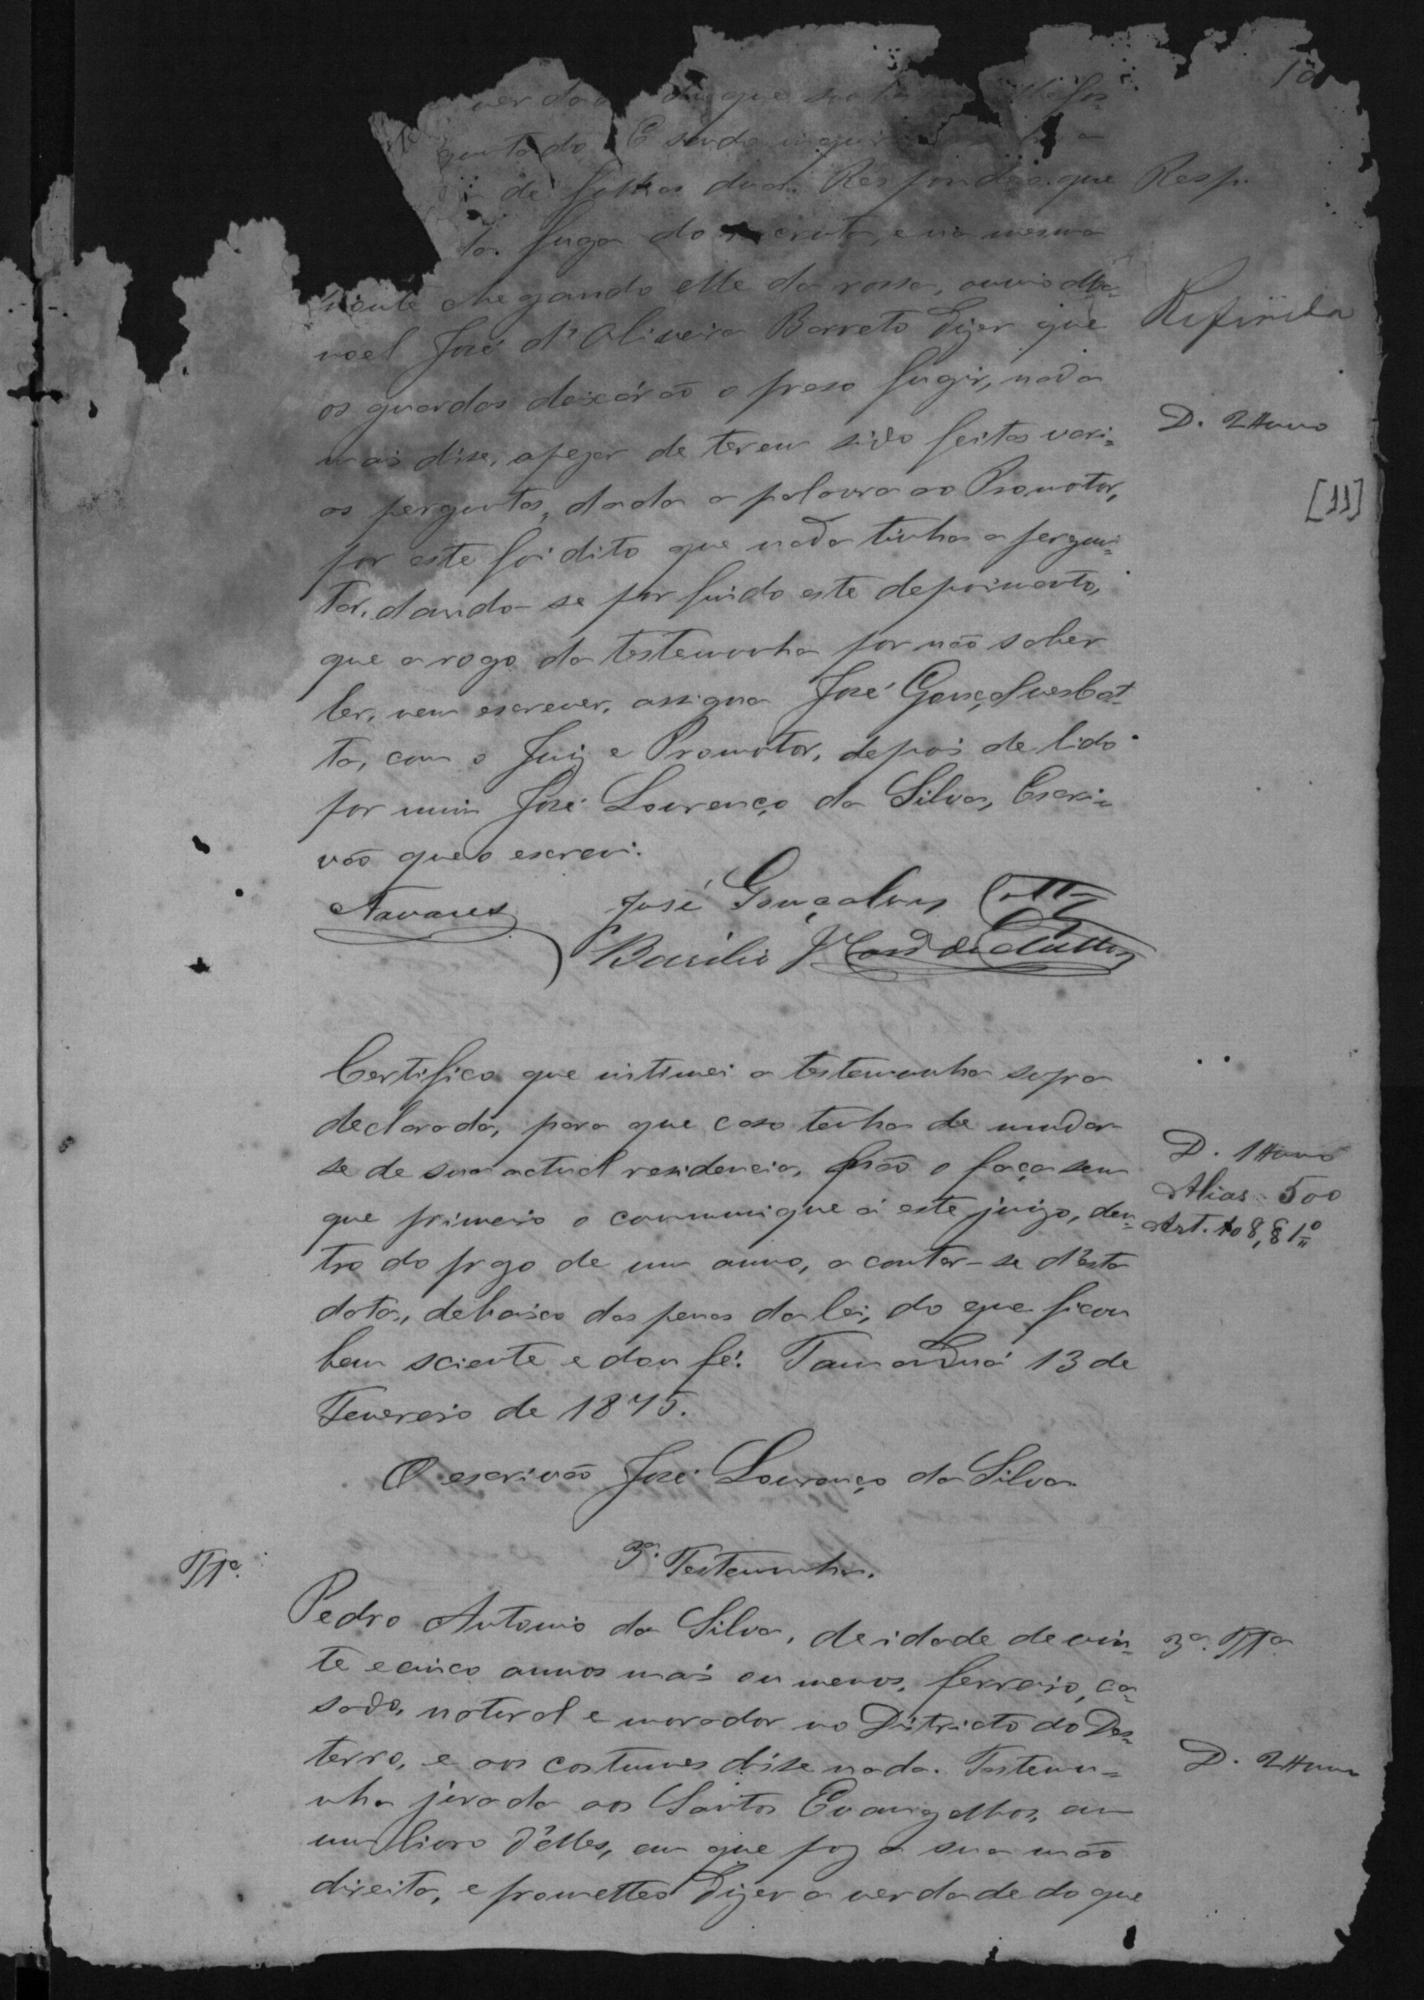 10
que
guntado E sendo
de folhas duas. Respondeo que Resp.
fuga do recruta, e na mesma
chegando elle da rossa, ouvio Ma-
noel José d'Oliveira Barreto dizer que
Referida
os guardas deixárão o preso fugir, nada
mais disse, apezar de terem sido feitas vari-
D. 2
as perguntas, dada a palavra ao Promotor,
[11]
por este foi dito que nada tinha a pergun-
tar, dando-se por findo este depoimento,
que a rogo da testemunha por não saber
ler, nem escrever, assigna José Gonçalves Cot-
ta, com o Juiz e Promotor, depois de lido
por mim José Lourenço da Silva, Escri-
vão que o escrevi.
Tavares José Gonçalves Cotta
Basilio
Certifico que intimei a testemunha supra
declarada, para que caso tenha de mudar
se de sua actual residencia, não o faça sem
D. 1
Alias 500
que primeiro o communique á este juizo, den-
Art. 108, § 1º
tro do prazo de um anno, a contar-se d'esta
data, debaixo das penas da lei, do que ficou
bem sciente e dou fé. Tamanduá 13 de
Fevereiro de 1875.
O escrivão José Lourenço da Silva
3ª Testemunha.
TTª
Pedro Antonio da Silva, de idade de vin-
3ª TTª
te e cinco annos mais ou menos, ferreiro, ca-
sado, natural e morador no Districto do Des-
terro, e aos costumes disse nada. Testemu-
D. 2
nha jurada aos Santos Evangelhos, em
um livro d'elles, em que poz a sua mão
direita, e prometteo dizer a verdade do que